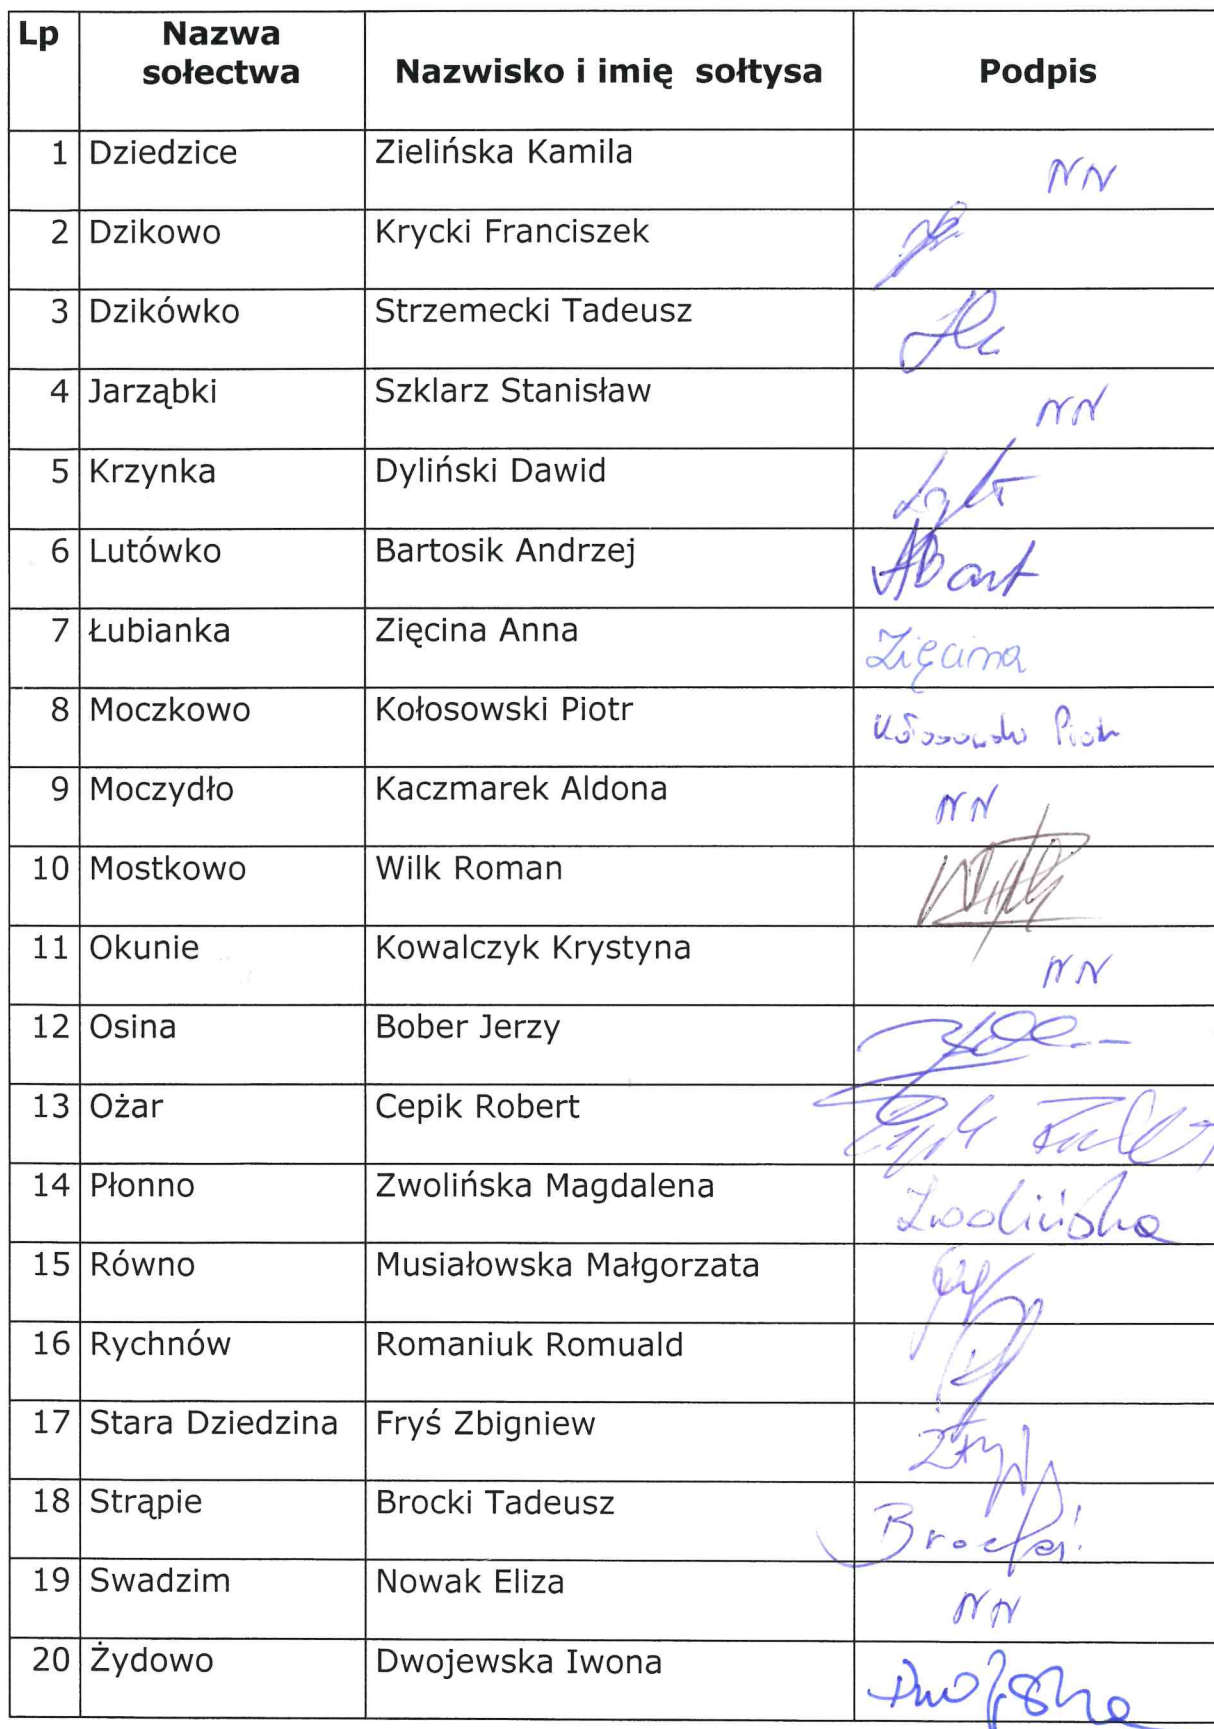 Lp Nazwa sołectwa Nazwisko i imię sołtysa Podpis
1 Dziedzice Zielińska Kamila NN
2 Dzikowo Krycki Franciszek
3 Dzikówko Strzemecki Tadeusz
4 Jarząbki Szklarz Stanisław NN
5 Krzynka Dyliński Dawid
6 Lutówko Bartosik Andrzej ABart
7 Łubianka Zięcina Anna Zięcina
8 Moczkowo Kołosowski Piotr Piotr
9 Moczydło Kaczmarek Aldona NN
10 Mostkowo Wilk Roman
11 Okunie Kowalczyk Krystyna NN
12 Osina Bober Jerzy
13 Ożar Cepik Robert
14 Płonno Zwolińska Magdalena Zwolińska
15 Równo Musiałowska Małgorzata
16 Rychnów Romaniuk Romuald
17 Stara Dziedzina Fryś Zbigniew
18 Strąpie Brocki Tadeusz Brocki
19 Swadzim Nowak Eliza NN
20 Żydowo Dwojewska Iwona